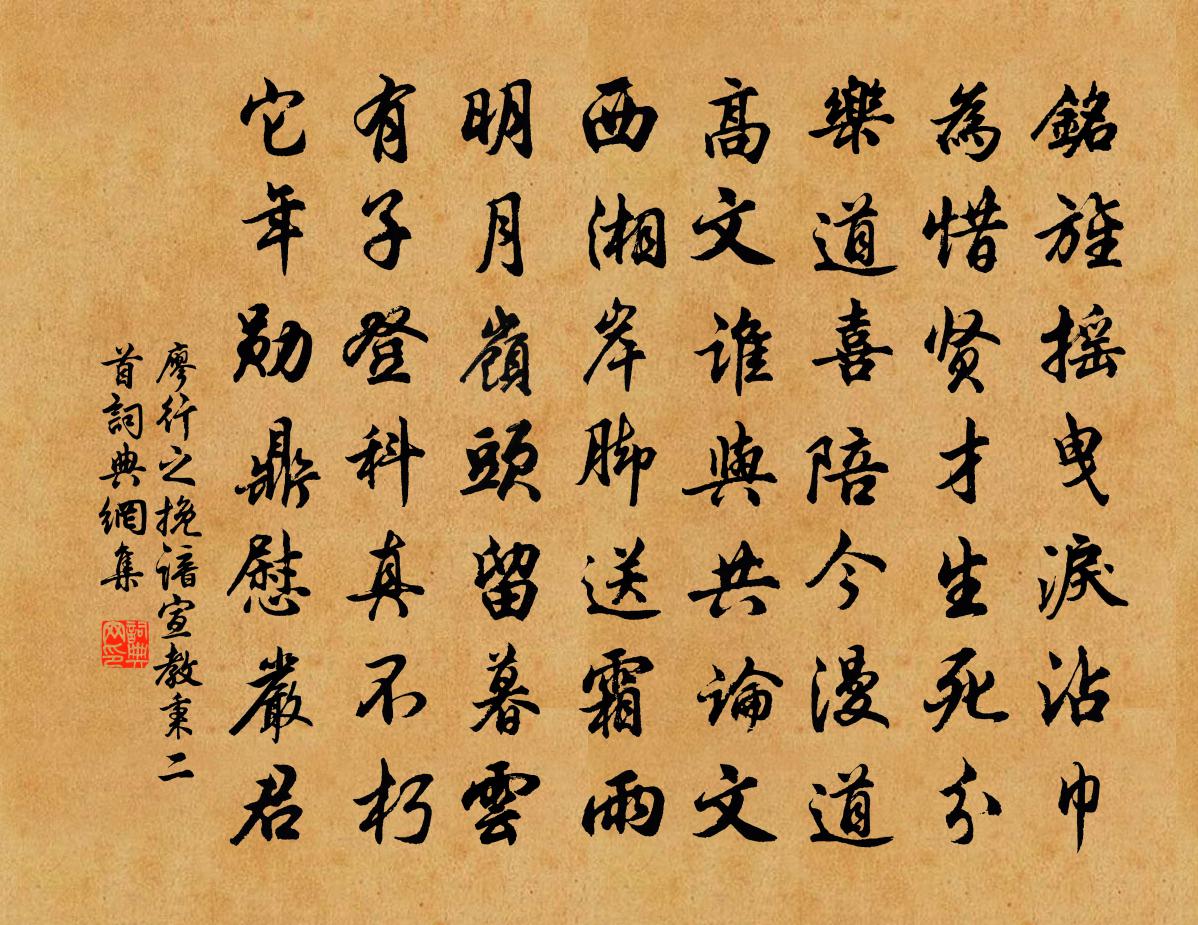 銘旌摇曳淚沾巾
為惜贤才生死分
樂道喜陪今漫道
高文誰與共論文
西湘岸脚送霜雨
明月嶺頭留暮雲
有子登科真不朽
它年勛鼎慰嚴君
廖行之挽諳宣教秉二
首詞典網集
詞典
网印